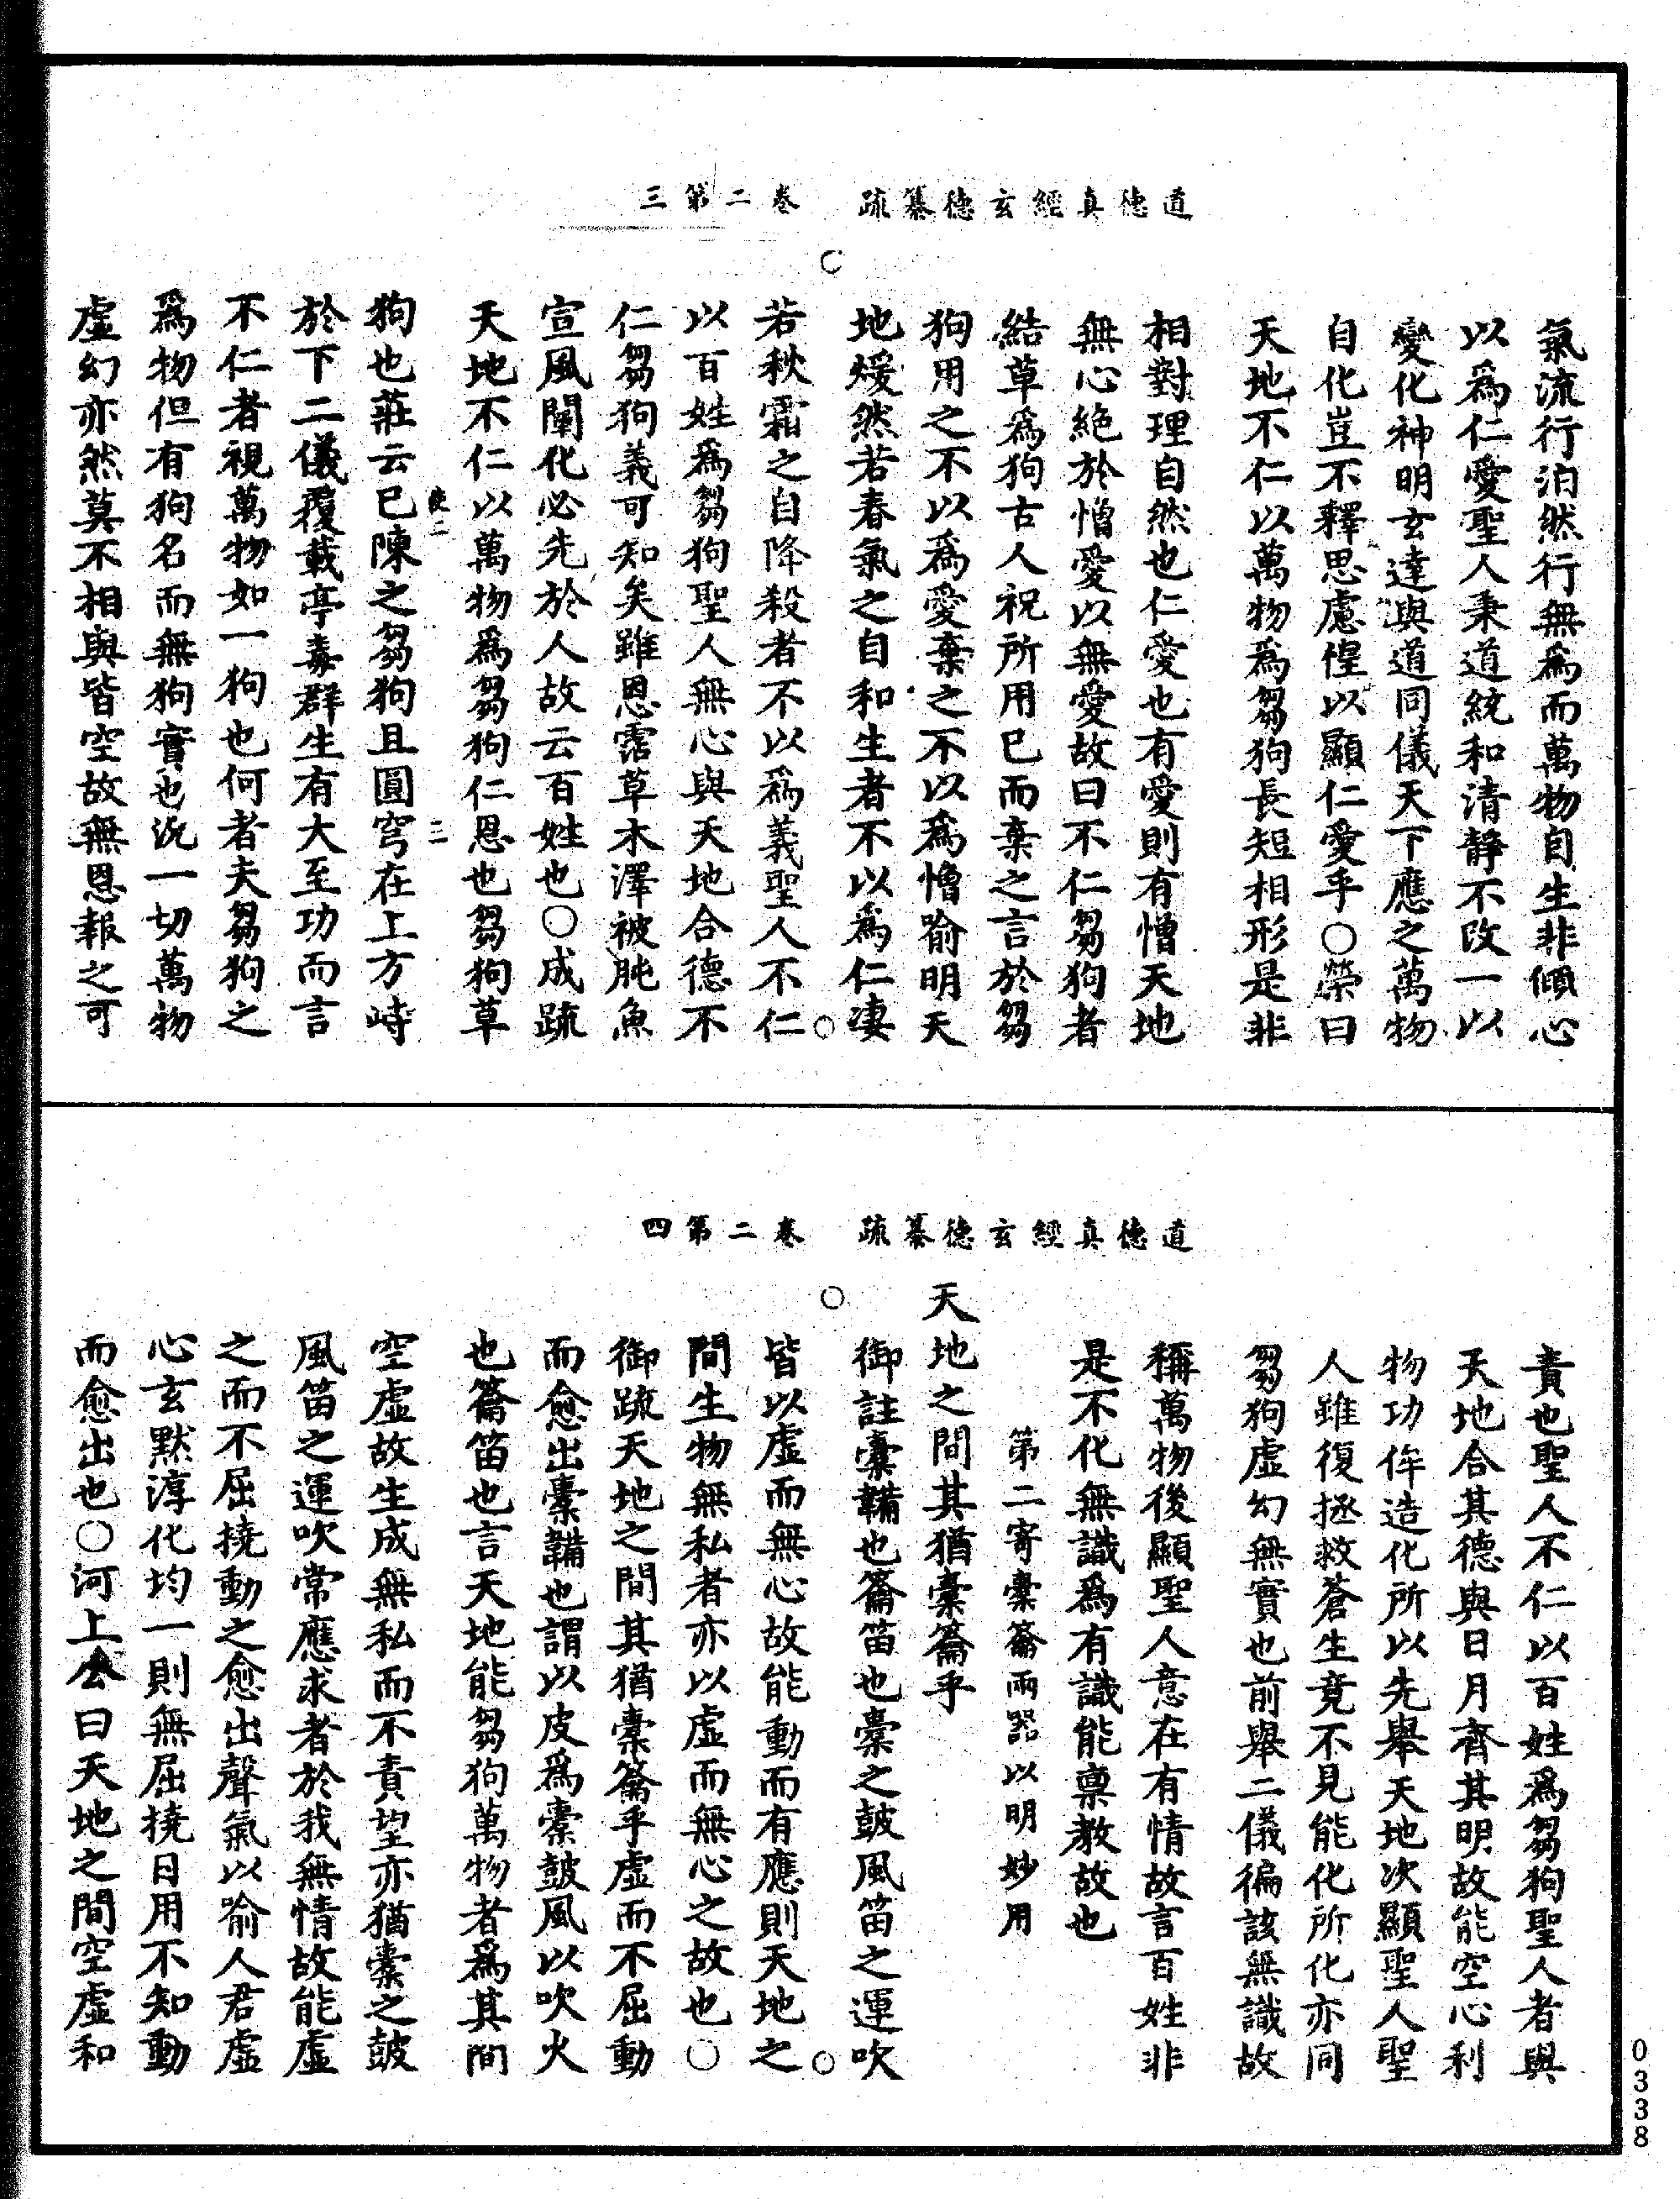 道德真經玄德纂疏　卷二第三
氣流行泊然行無為而萬物自生非傾心
以為仁愛聖人秉道統和清靜不改一以
變化神明玄達與道同儀天下應之萬物
自化豈不釋思慮惶以顯仁愛乎○榮曰
天地不仁以萬物為芻狗長短相形是非
相對理自然也仁愛也有愛則有憎天地
無心絶於憎愛以無愛故曰不仁芻狗者
結草為狗古人祝所用已而棄之言於芻
狗用之不以為愛棄之不以為憎喻明天
地煖然若春氣之自和生者不以為仁凄
若秋霜之自降殺者不以為義聖人不仁
以百姓為芻狗聖人無心與天地合德不
仁芻狗義可知矣雖恩霑草木澤被肫魚
宣風闡化必先於人故云百姓也○成疏
天地不仁以萬物為芻狗仁恩也芻狗草
狗也莊云已陳之芻狗且圓穹在上方峙
於下二儀覆載亭毒群生有大至功而言
不仁者視萬物如一狗也何者夫芻狗之
為物但有狗名而無狗實也況一切萬物
虛幻亦然莫不相與皆空故無恩報之可
道德真經玄德纂疏　卷二第四
責也聖人不仁以百姓為芻狗聖人者與
天地合其德與日月齊其明故能空心利
物功侔造化所以先舉天地次顯聖人聖
人雖復拯救蒼生竟不見能化所化亦同
芻狗虛幻無實也前舉二儀徧該無識故
稱萬物後顯聖人意在有情故言百姓非
是不化無識為有識能稟教故也
第二寄橐籥兩器以明妙用
天地之間其猶橐籥乎
御註橐韛也籥笛也橐之皷風笛之運吹
皆以虛而無心故能動而有應則天地之
間生物無私者亦以虛而無心之故也○
御疏天地之間其猶橐籥乎虛而不屈動
而愈出橐韛也謂以皮為橐皷風以吹火
也籥笛也言天地能芻狗萬物者為其間
空虛故生成無私而不責望亦猶橐之皷
風笛之運吹常應求者於我無情故能虛
之而不屈撓動之愈出聲氣以喻人君虛
心玄默淳化均一則無屈撓日用不知動
而愈出也○河上公曰天地之間空虛和
0338